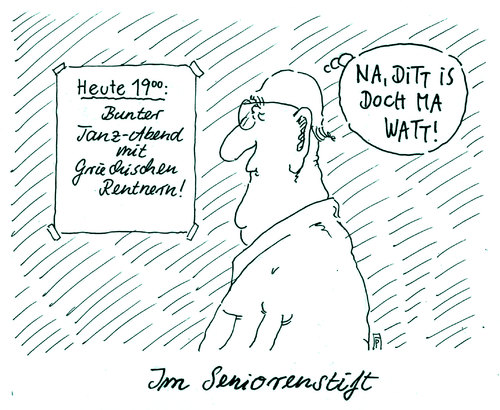 Heute 19⁰⁰:
Bunter
Tanz-Abend
mit
Griechischen
Rentnern!
NA, DITT IS
DOCH MA
WATT!
Im Seniorenstift